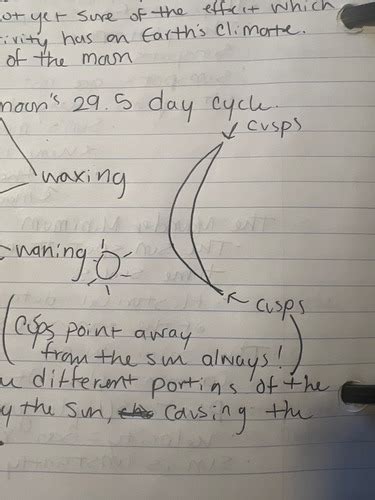 not yet sure of the effect which
ivity has on Earth's climate.
of the moon
moon's 29.5 day cycle.
cusps
waxing
waning
cusps
(Cusps point away
from the sun always!)
different portins of the
the sun, causing the